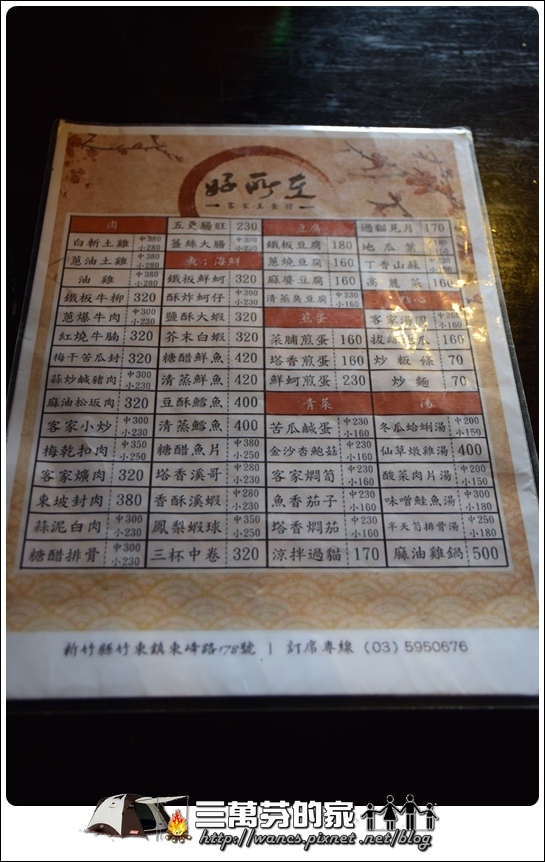 好所在
客家美食館
肉
白斬土雞 中380 小280
蔥油土雞 中380 小280
油雞 中380 小280
鐵板牛柳 320
蔥爆牛肉 中300 小230
紅燒牛腩 320
梅干苦瓜封 320
蒜炒鹹豬肉 中320 小230
麻油松坂肉 320
客家小炒 中300 小230
梅乾扣肉 中350 小250
客家爌肉 中320 小230
東坡封肉 380
蒜泥白肉 中300 小230
糖醋排骨 中320 小230
五更腸旺 230
薑絲大腸
魚;海鮮
鐵板鮮蚵 320
酥炸蚵仔 中300 小230
鹽酥大蝦 320
芥末白蝦 320
糖醋鮮魚 420
清蒸鮮魚 420
豆酥鱈魚 400
清蒸鱈魚 400
糖醋魚片 中380 小230
塔香溪哥 中280 小230
香酥溪蝦 中280 小230
鳳梨蝦球 中350 小250
三杯中卷 320
豆腐
鐵板豆腐 180
蔥燒豆腐 160
麻婆豆腐 160
清蒸臭豆腐 中230 小160
煎蛋
菜脯煎蛋 160
塔香煎蛋 160
鮮蚵煎蛋 230
青菜
苦瓜鹹蛋 中230 小160
金沙杏鮑菇 中230 小160
客家燜筍 中230 小160
魚香茄子 中230 小160
塔香燜茄 中230 小160
涼拌過貓 170
過貓見月 170
地瓜葉
丁香山蘇 中230 小160
高麗菜
點心
客家湯圓 中260 小160
拔絲地瓜 160
炒粄條 70
炒麵 70
湯
冬瓜蛤蜊湯 中200 小150
仙草燉雞湯 400
酸菜肉片湯 中200 小150
味噌鮭魚湯 中200 小150
半天筍排骨湯 中250 小180
麻油雞鍋 500
新竹縣竹東鎮東峰路178號 | 訂席專線 (03) 5950676
三萬芬的家
http://wancs.pixnet.net/blog